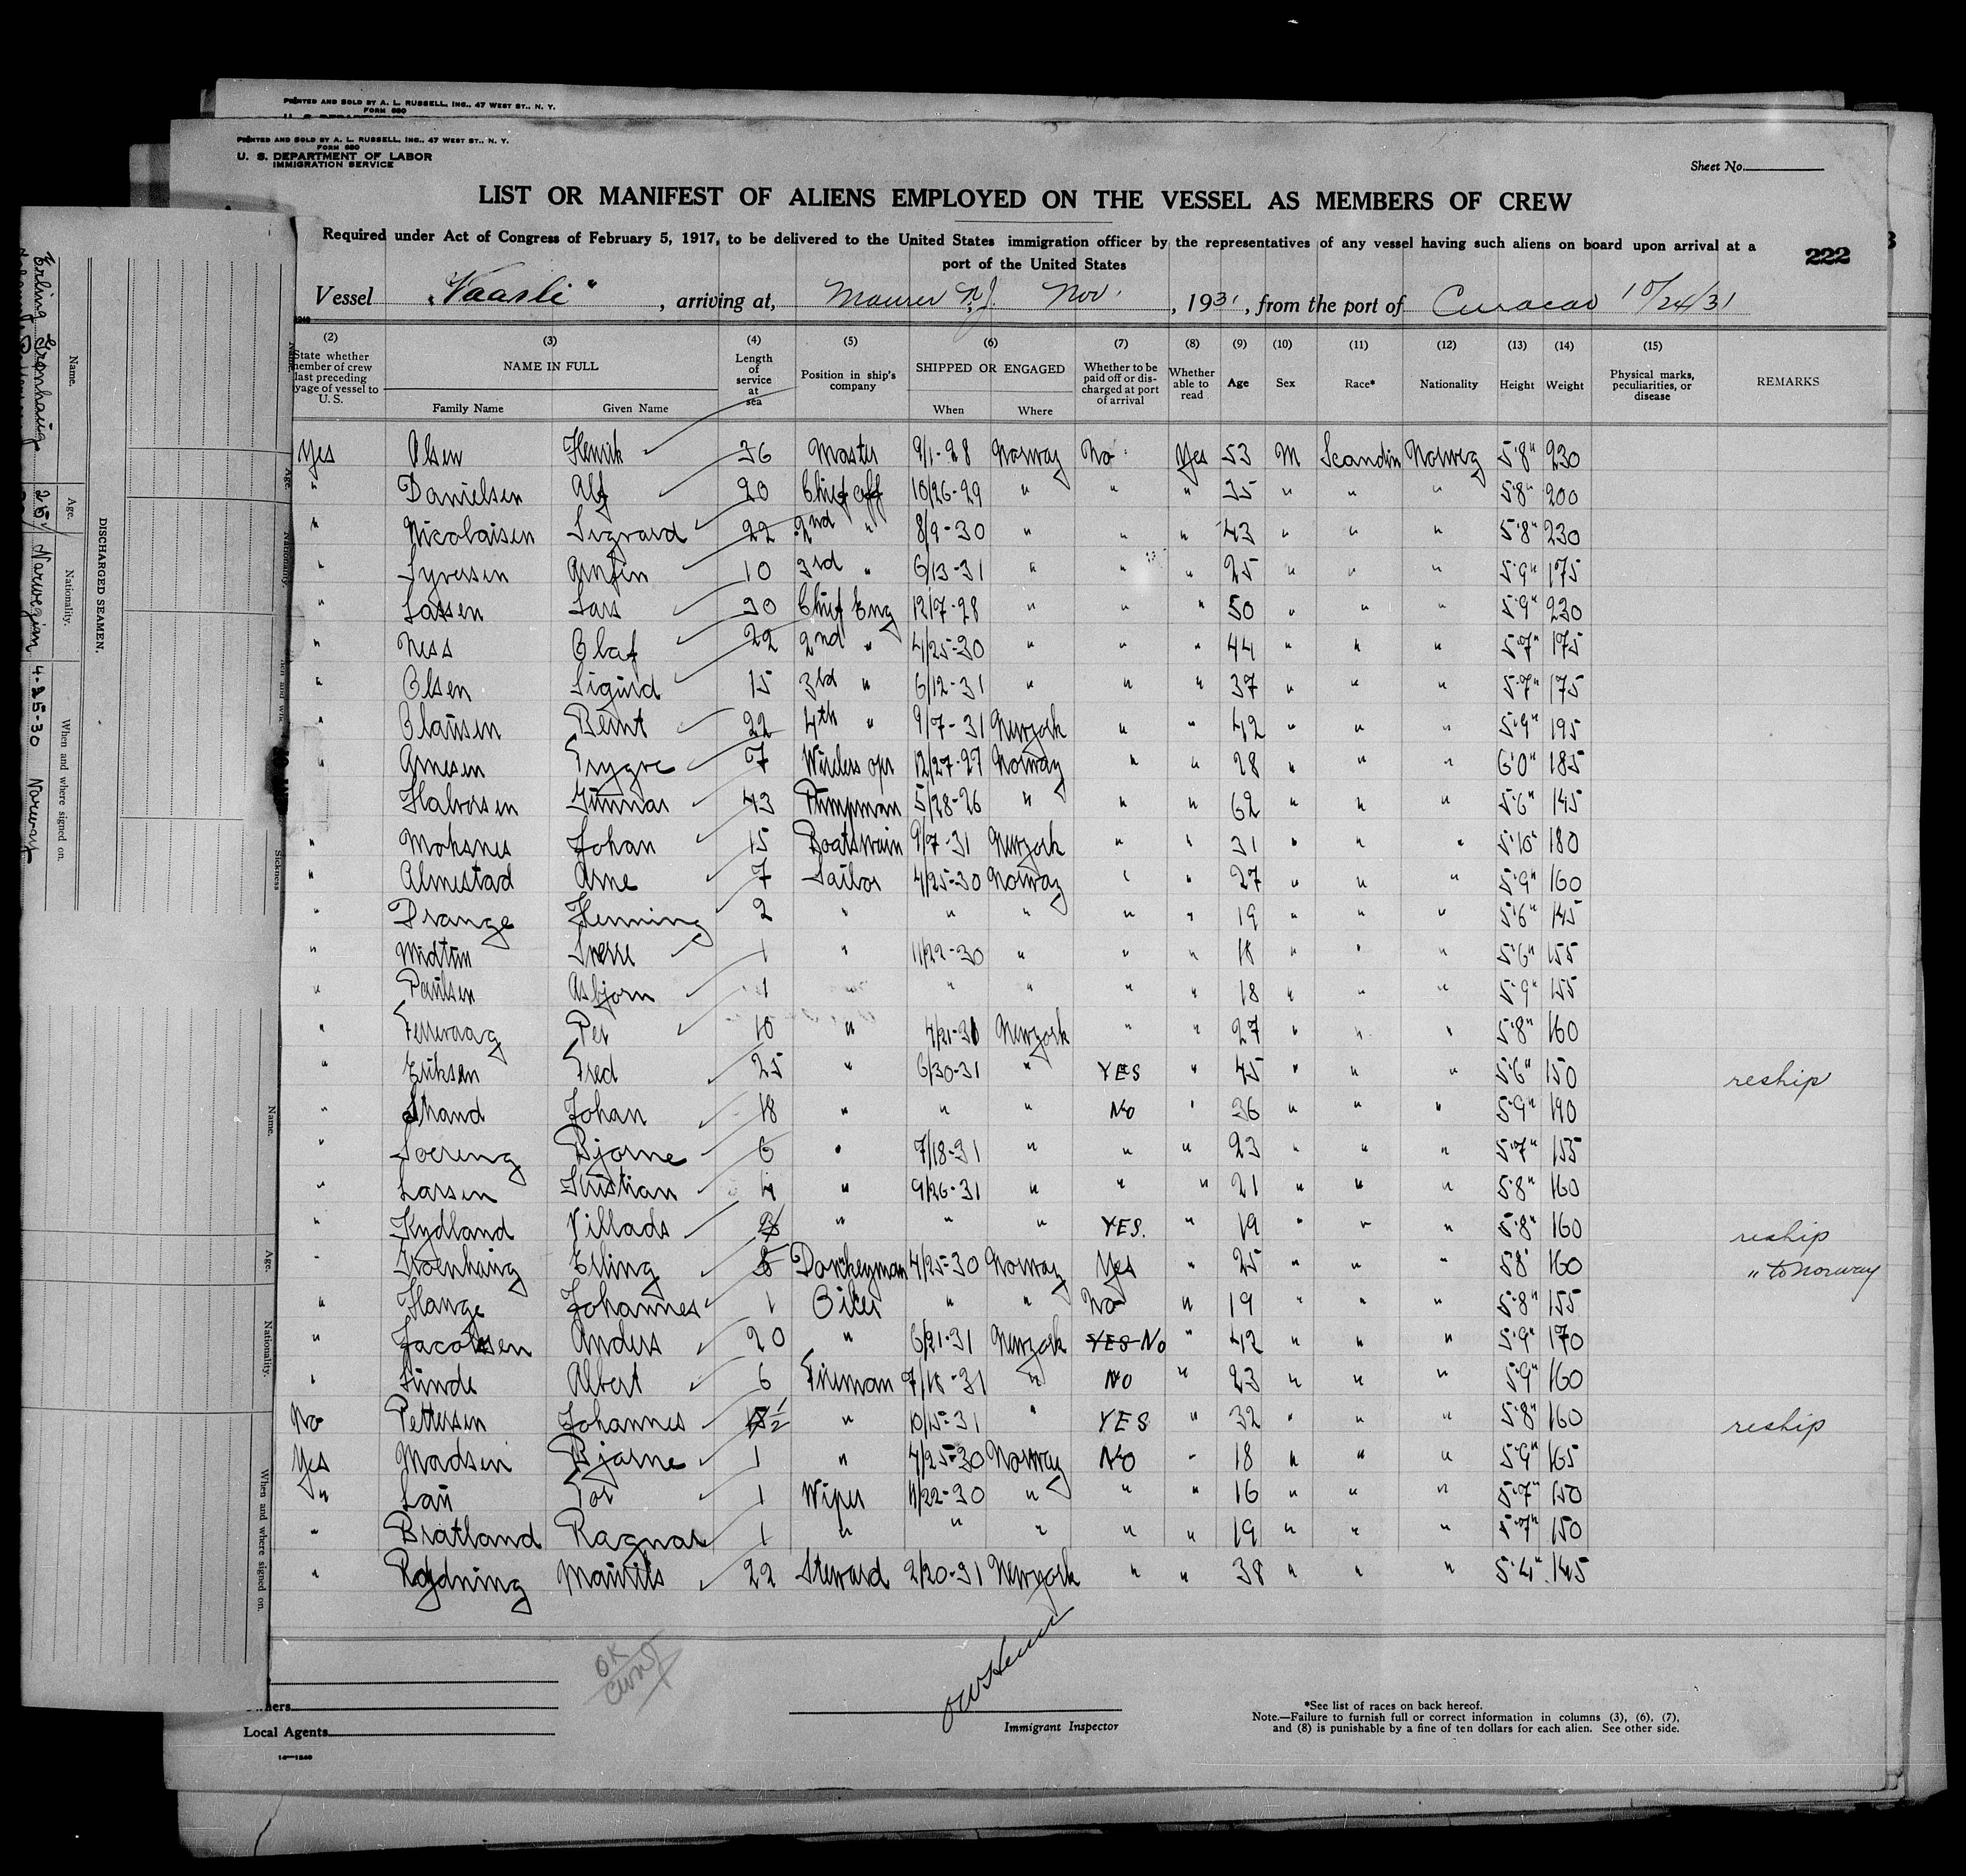 PRINTED AND SOLD BY A. L. RUSSELL, INC., 47 WEST ST., N. Y.
FORM 680
PRINTED AND SOLD BY A. L. RUSSELL, INC., 47 WEST ST., N. Y.
FORM 680
U. S. DEPARTMENT OF LABOR
IMMIGRATION SERVICE
Sheet No.
LIST OR MANIFEST OF ALIENS EMPLOYED ON THE VESSEL AS MEMBERS OF CREW
Required under Act of Congress of February 5, 1917, to be delivered to the United States immigration officer by the representatives of any vessel having such aliens on board upon arrival at a
port of the United States
222
Vessel "Vaarli", arriving at, Maurer N.J. Nov. , 1931, from the port of Curacao 10/24/31
(2) (3) (4) (5) (6) (7) (8) (9) (10) (11) (12) (13) (14) (15)
State whether member of crew last preceding voyage of vessel to U. S. NAME IN FULL Family Name Given Name Length of service at sea Position in ship's company SHIPPED OR ENGAGED When Where Whether to be paid off or discharged at port of arrival Whether able to read Age Sex Race* Nationality Height Weight Physical marks, peculiarities, or disease REMARKS
Yes Olsen Henrik 36 Master 9/1-28 Norway No Yes 53 M Scandin Norweg 5'8" 230
" Danielsen Alf 20 Chief off 10/26-29 " " " 35 " " " 5'8" 200
" Nicolaisen Sigvard 22 2nd " 8/9-30 " " " 43 " " " 5'8" 230
" Syversen Arnfin 10 3rd " 6/13-31 " " " 25 " " " 5'9" 175
" Larsen Lars 30 Chief Eng 12/7-28 " " " 50 " " " 5'9" 230
" Ness Olaf 22 2nd " 4/25-30 " " " 44 " " " 5'7" 175
" Olsen Sigurd 15 3rd " 6/12-31 " " " 37 " " " 5'7" 175
" Clausen Bernt 22 4th " 9/7-31 Newyork " " 42 " " " 5'9" 195
" Arnesen Trygve 7 Wireless opr 12/27-27 Norway " " 28 " " " 6'0" 185
Halvorsen Gunnar 43 Pumpman 5/28-26 " " " 62 " " " 5'6" 145
" Moksnes Johan 15 Boatswain 9/7-31 Newyork " " 31 " " " 5'10" 180
" Almestad Arne 7 Sailor 4/25-30 Norway " " 27 " " " 5'9" 160
" Drange Henning 2 " " " " " 19 " " " 5'6" 145
" Midttun Sverre 1 " 11/22-30 " " " 18 " " " 5'6" 155
" Paulsen Asbjorn 1 " " " " 18 " " " 5'9" 155
" Per 10 " 4/21-31 Newyork " " 27 " " " 5'8" 160
" Eriksen Fred 25 " 6/30-31 " YES " 45 " " " 5'6" 150 reship
" Strand Johan 18 " " " No " 36 " " " 5'9" 190
" Soereng Bjarne 6 " 7/18-31 " " " 23 " " " 5'7" 155
" Larsen Kristian 4 " 9/26-31 " " " 21 " " " 5'8" 160
" Kydland Villads " " " YES. " 19 " " " 5'8" 160 reship
" Groenhaug Erling 8 Donkeyman 4/25-30 Norway Yes " 25 " " " 5'8" 160 " to Norway
" Hauge Johannes 1 Oiler " " No " 19 " " " 5'8" 155
" Jacobsen Anders 20 " 6/21-31 Newyork YES No " 42 " " " 5'9" 170
" Sunde Albert 6 Fireman 7/18-31 " NO " 23 " " " 5'9" 160
No Pettersen Johannes " 10/15-31 " YES " 32 " " " 5'8" 160 reship
Yes Madsen Bjarne 1 " 4/25-30 Norway No " 18 " " " 5'9" 165
" Lau Tor 1 Wiper 11/22-30 " " " 16 " " " 5'7" 150
" Bratland Ragnar 1 " " " " " 19 " " " 5'7" 150
" Maurits 22 Steward 2/20-31 Newyork " " 38 " " " 5'4" 145
OK
Owners
Local Agents
Immigrant Inspector
*See list of races on back hereof.
Note.—Failure to furnish full or correct information in columns (3), (6), (7),
and (8) is punishable by a fine of ten dollars for each alien. See other side.
DISCHARGED SEAMEN.
Name. Age. Nationality. When and where signed on.
Erling Gronhaug 25 Norwegian 4-25-30 Norway
Sickness
Name. Age. Nationality. When and where signed on.